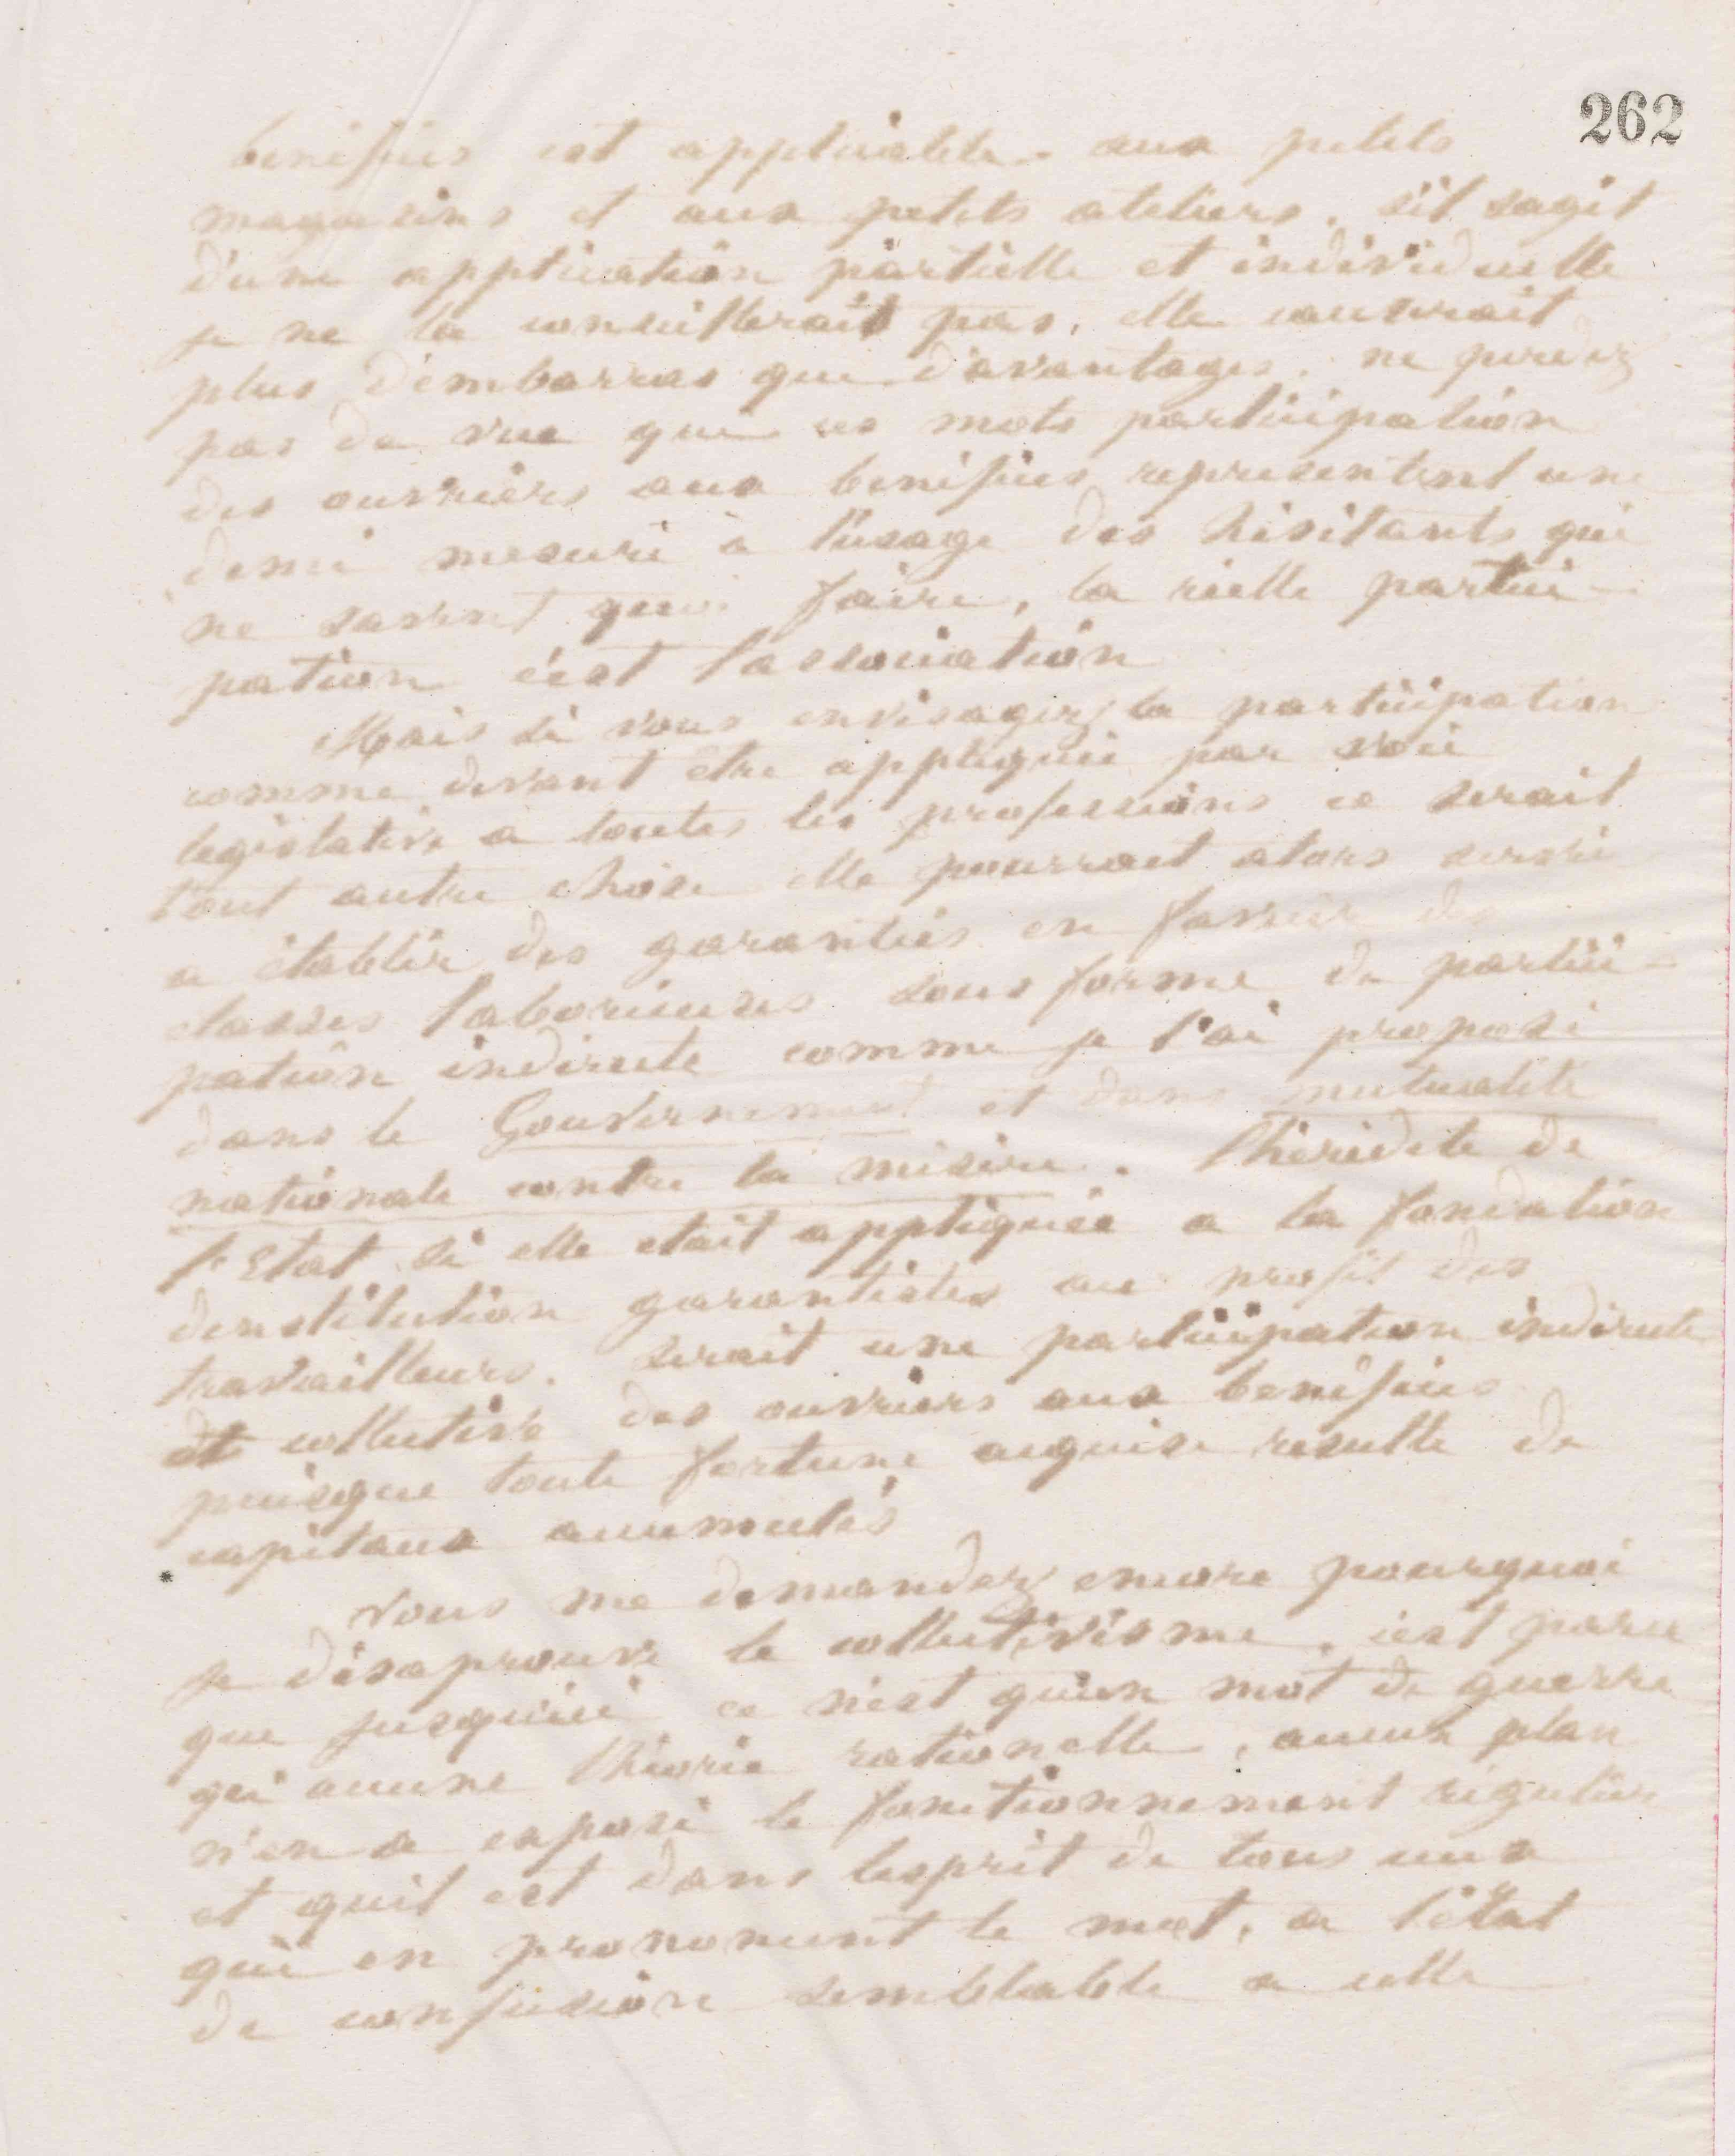 262
benefices est applicable aux petits
magasins et aux petits ateliers. s'il sagit
d'une application partielle et individuelle
je ne la conseillerait pas, elle causerait
plus d'embarras que d'avantages. ne perdez
pas de vue que ces mots participation
des ouvriers aux benefices representent une
demi mesure à l'usage des hésitants qui
ne savent que faire, la réelle partici-
pation c'est l'association
Mais si vous envisagez la participation
comme devant être appliquée par voie
legislative a toutes les professions ce serait
tout autre chose elle pourrait alors servir
a établir des garanties en faveur des
classes laborieuses sous forme de partici-
pation indirecte comme je l'ai proposé
dans le Gouvernement et dans mutualité
nationale contre la misère. l'hérédité de
l'Etat si elle etait appliquée a la fondation
d'institution garantistes au profit des
travailleurs. serait une participation indirecte
et collective des ouvriers aux bénéfices
puisque toute fortune acquise resulte de
capitaux accumulés
Vous me demandez encore pourquoi
je désaprouve le collectivisme, c'est parce
que jusqu'ici ce n'est qu'un mot de guerre
qui aucune théorie rationelle, aucun plan
n'en a exposé le fonctionnement régulier
et quil est dans lesprit de tous ceux
qui en prononcent le mot, a l'état
de confusion semblable a celle